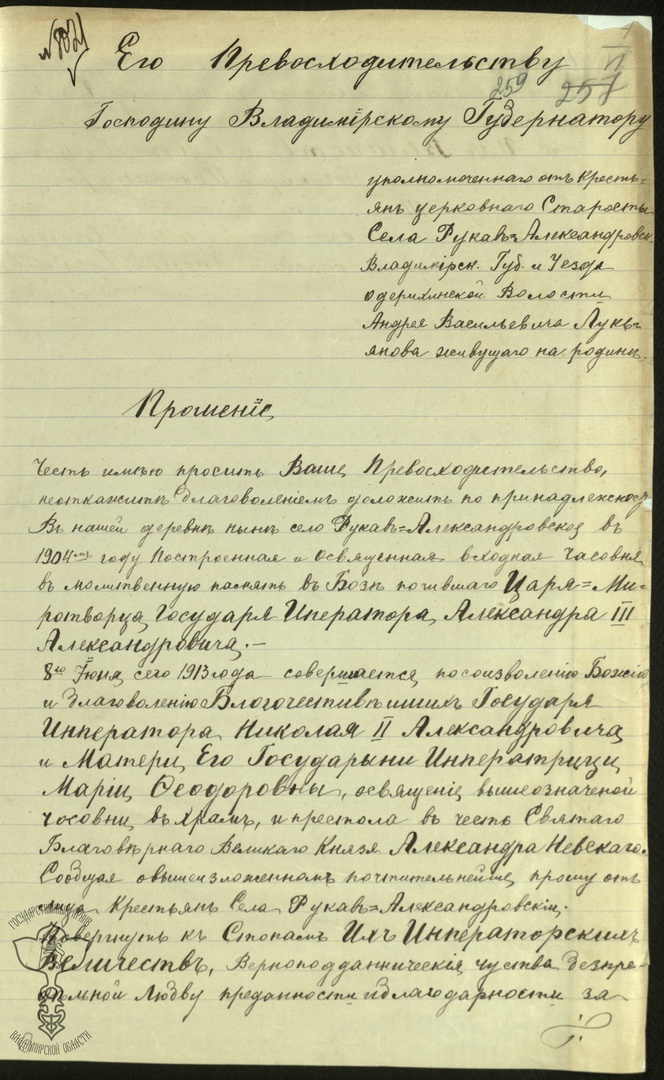 № 8021
Его Превосходительству
259 257
Господину Владимірскому Губернатору
уполномоченнаго отъ кресть=
янъ церковнаго Старосты
Села Рукавъ=Александровск.
Владимірск. Губ. и Уезда
одерихинской Волости
Андрея Васильевича Лукь=
янова живущаго на родинѣ.
Прошеніе
Честь имѣю просить Ваше Превосходительство,
неоткажитѣ благоволеніемъ доложить по принадлежносу
Въ нашей деревнѣ нынѣ село Рукавъ=Александровское въ
1904мъ году Построенная и Освященная входная часовня
въ молитвенную память въ Бозѣ почившаго Царя=Ми-
ротворца, Государя Император­а, Александра III
Александровича.—
8го Іюня, сего 1913 года совершается посоизволенію Божію
и благоволенію Благочестивѣишихъ Государя
Императора, Николая II Александровича
и Матери, Его Государыни Императрицы
Маріи Феодоровны, освященіе вышеозначеной
часовни въ храмъ, и престола въ честь Святаго
Благовѣрнаго Великаго Князя Александра Невскаго.
Сообщая овышеизложенномъ почтительнейше, прошу отъ
лица Крестьянъ Села Рукавъ=Александровскіи.
Повергнуть къ Стопамъ Ихъ Императорскихъ
Величествъ, Верноподданническіе чуства безпре
дѣльной Любву преданности и благодарности за
ГОСУДАРСТВЕННЫЙ АРХИВ
ВЛАДИМИРСКОЙ ОБЛАСТИ